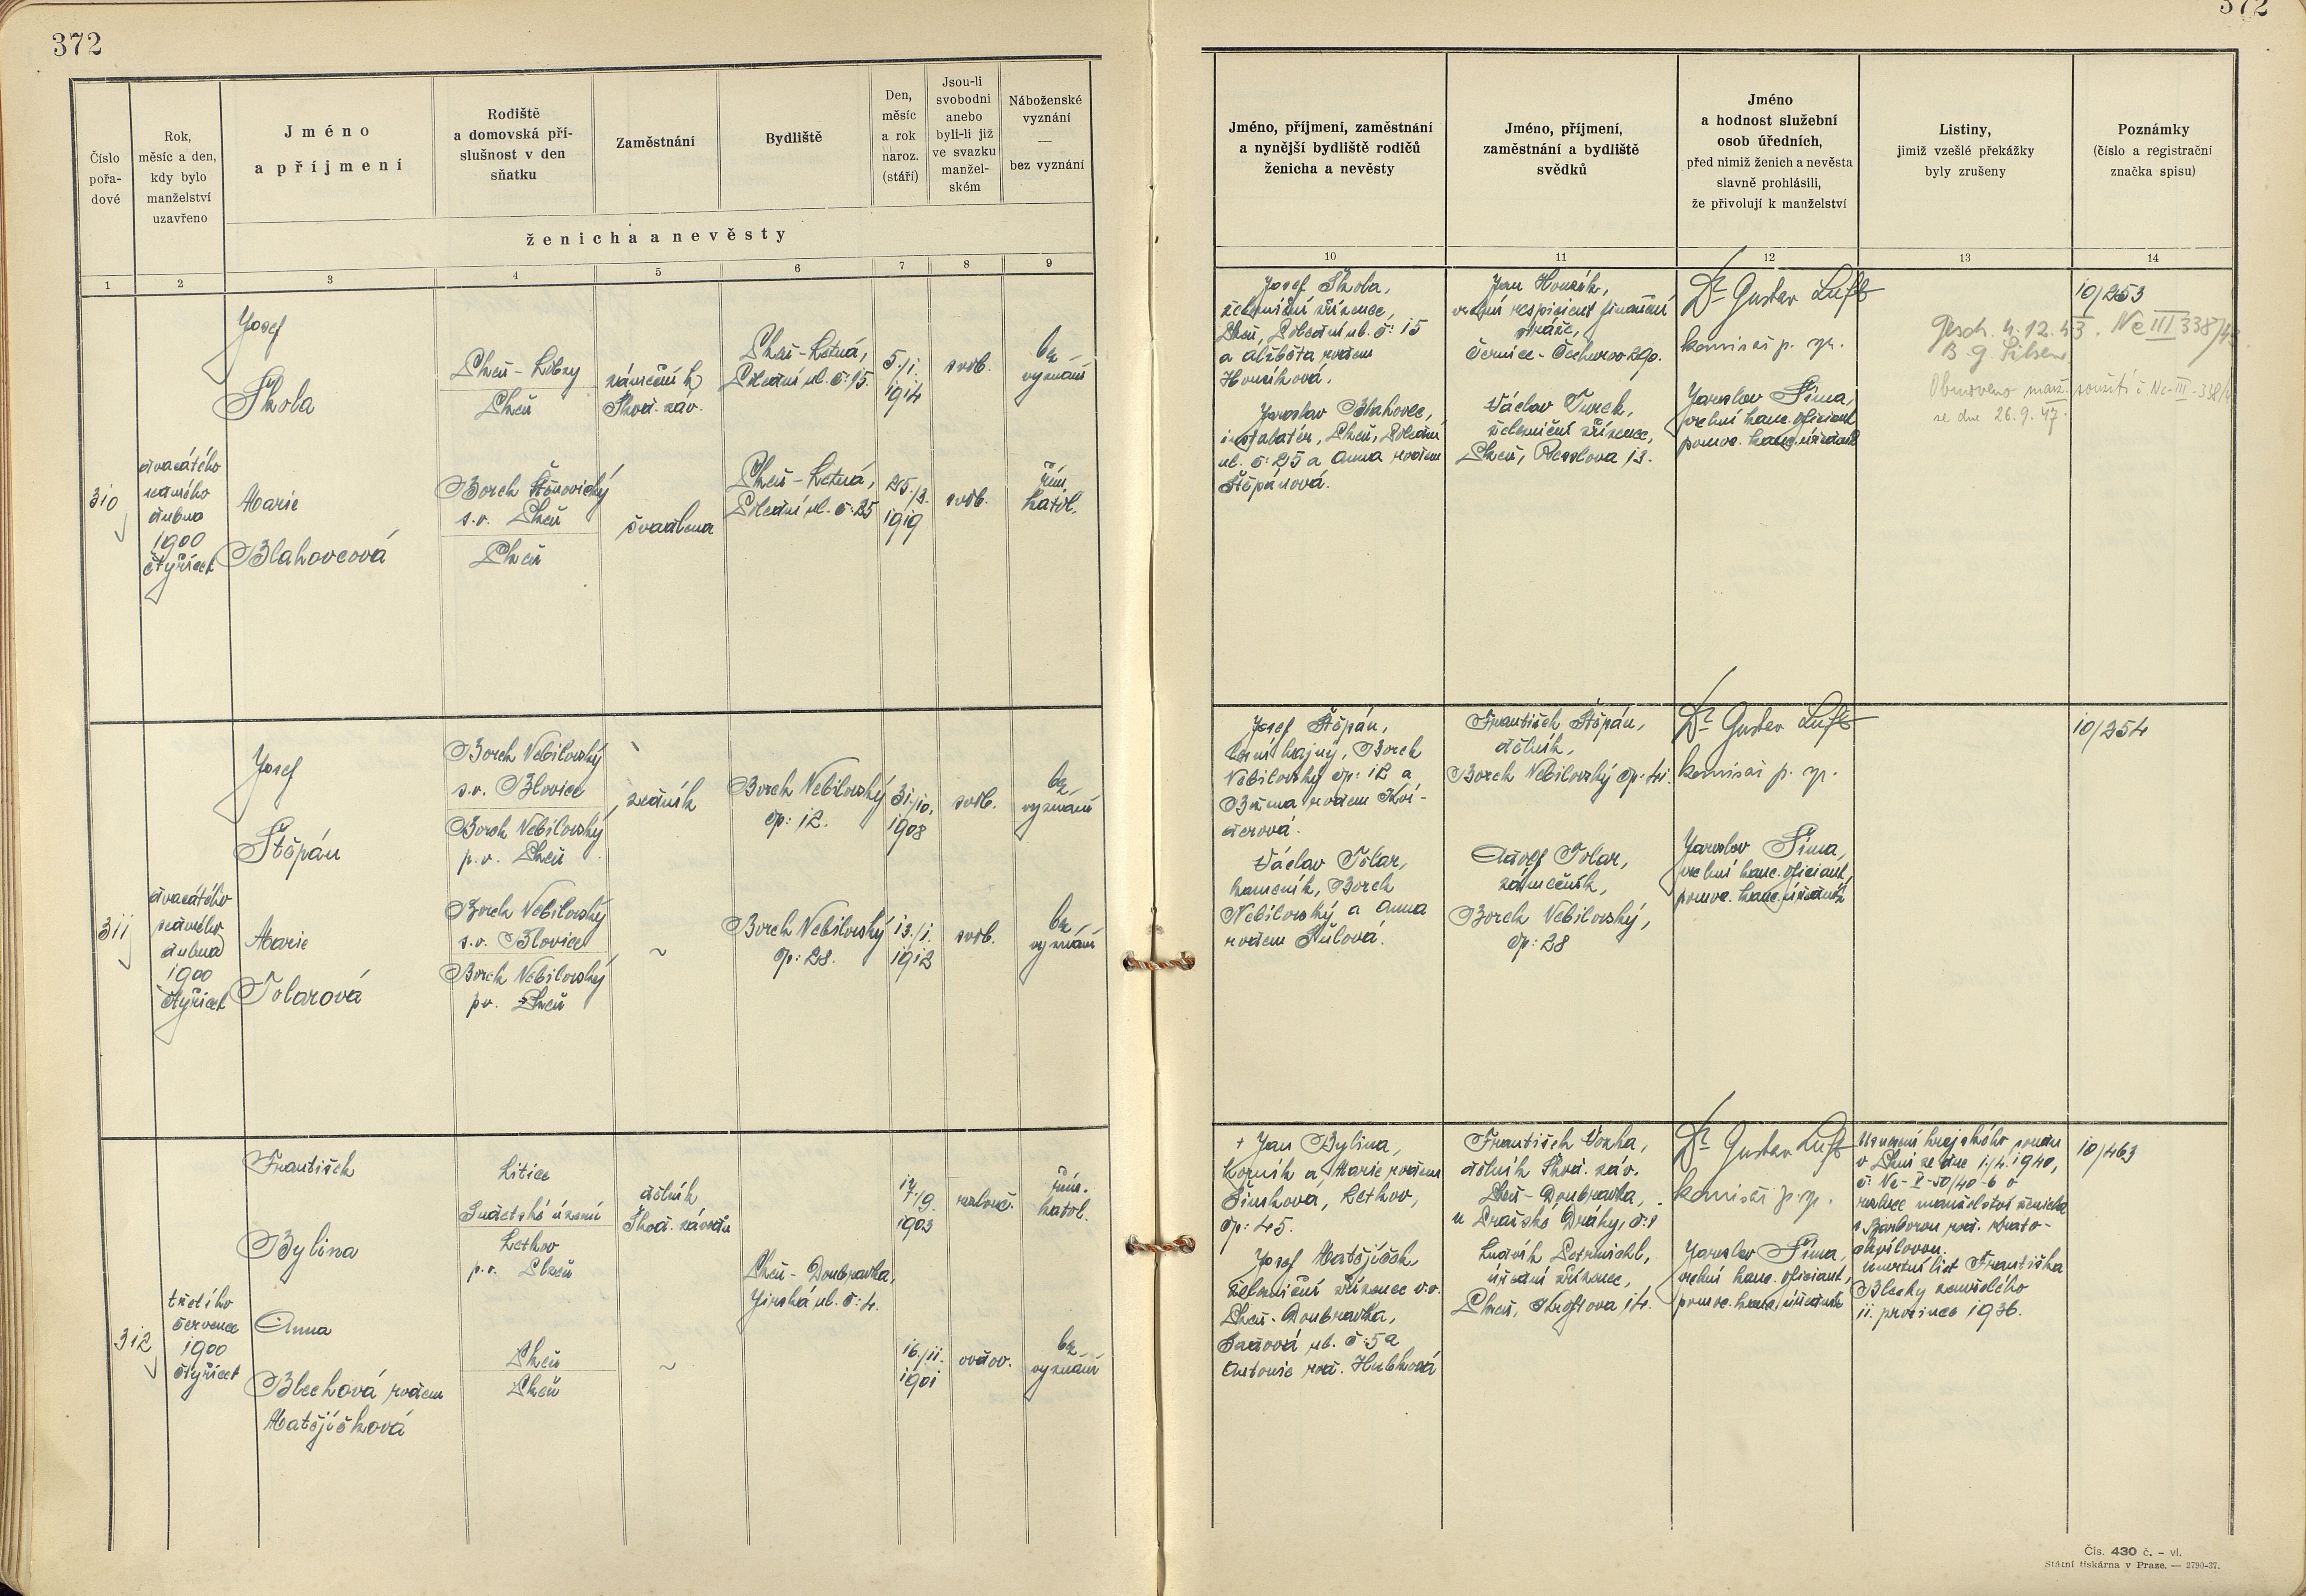 372
372
Číslo
pořa-
dové
Rok,
měsíc a den,
kdy bylo
manželství
uzavřeno
Jméno
a příjmení
Rodiště
a domovská pří-
slušnost v den
sňatku
Zaměstnání
Bydliště
Den,
měsíc
a rok
naroz.
(stáří)
Jsou-li
svobodni
anebo
byli-li již
ve svazku
manžel-
ském
Náboženské
vyznání
—
bez vyznání
ženicha a nevěsty
1 2 3 4 5 6 7 8 9
Jméno, příjmení, zaměstnání
a nynější bydliště rodičů
ženicha a nevěsty
Jméno, příjmení,
zaměstnání a bydliště
svědků
Jméno
a hodnost služební
osob úředních,
před nimiž ženich a nevěsta
slavně prohlásili,
že přivolují k manželství
Listiny,
jimiž vzešlé překážky
byly zrušeny
Poznámky
(číslo a registrační
značka spisu)
10 11 12 13 14
310
dvacátého
sedmého
dubna
1900
čtyřicet
Josef
Škola
Plzeň - Lobzy
Plzeň
zámečník
Škod. záv.
Plzeň - Letná,
Polední ul. č: 15.
5./1.
1914
svob.
bez
vyznání
Marie
Blahovcová
Borek Štěnovický
s.o. Plzeň
Plzeň
švadlena
Plzeň - Letná,
Polední ul. č: 25
25./3.
1919
svob.
řím.
katol.
Josef Škola,
železniční zřízenec,
Plzeň, Polední ul. č: 15
a Alžběta rodem
Houzíková.
Jaroslav Blahovec,
instalatér, Plzeň, Polední
ul. č: 25 a Anna rodem
Štěpánová.
Jan Houzík,
vrchní respicient finanční
stráže,
Černice - Čechurov 290.
Václav Turek,
železniční zřízenec,
Plzeň, Resslova 13.
Dr Gustav Luft
komisař p. sp.
Jaroslav Šíma,
vrchní kanc. oficiant
pomoc. kanc. úředník
10/253
Gesch. 4.12.43. Nc III 338/43
B. G. Pilsen
Obnoveno manž. soužití č. Nc-III-338/4
ze dne 26.9.47.
311
dvacátého
sedmého
dubna
1900
čtyřicet
Josef
Štěpán
Borek Nebílovský
s.o. Blovice
Borek Nebílovský
p.o. Plzeň
zedník
Borek Nebílovský
čp: 12.
31./10.
1908
svob.
bez
vyznání
Marie
Tolarová
Borek Nebílovský
s.o. Blovice
Borek Nebílovský
p.o. Plzeň
~
Borek Nebílovský
čp: 28.
13./1.
1912
svob.
bez
vyznání
Josef Štěpán,
lesní hajný, Borek
Nebílovský čp: 12 a
rodem Kví-
derová.
Václav Tolar,
kameník, Borek
Nebílovský a Anna
rodem Šůlová.
František Štěpán,
dělník,
Borek Nebílovský čp: 41.
Adolf Tolar,
zámečník,
Borek Nebílovský,
čp: 28
Dr Gustav Luft
komisař p. sp.
Jaroslav Šíma,
vrchní kanc. oficiant,
pomoc. kanc. úředník
10/254
312
třetího
července
1900
čtyřicet
František
Bylina
Litice
Sudetské území
Lethov
p.o. Plzeň
dělník
Škod. závodů
Plzeň - Doubravka,
Jirská ul. č: 4.
17./9.
1903
rozlouč.
řím.
katol.
Anna
Blechová rodem
Matějíčková
Plzeň
Plzeň
~
16./11.
1901
ovdov.
bez
vyznání
† Jan Bylina,
horník a Marie rodem
Šimková, Lethov,
čp: 45.
Josef Matějíček,
železniční zřízenec v.v.
Plzeň - Doubravka,
ul. č: 5 a
Antonie roz. Hubková
František Voxha,
dělník Škod. záv.
Plzeň - Doubravka,
u Pražské Dráhy, č: 1
Ludvík Petrmichl,
úřední zřízenec,
Plzeň, Kroftova 14.
Dr Gustav Luft
komisař p. sp.
Jaroslav Šíma,
vrchní kanc. oficiant,
pomoc. kanc. úředník
Usnesení krajského soudu
v Plzni ze dne 1./4. 1940,
č. Nc-I-50/40-6 o
rozluce manželství ženicha
s Barborou roz. Krato-
chvílovou.
Úmrtní list Františka
Blechy zemřelého
11. prosince 1936.
10/463
Čís. 430 č. – vl.
Státní tiskárna v Praze. — 2790-37.